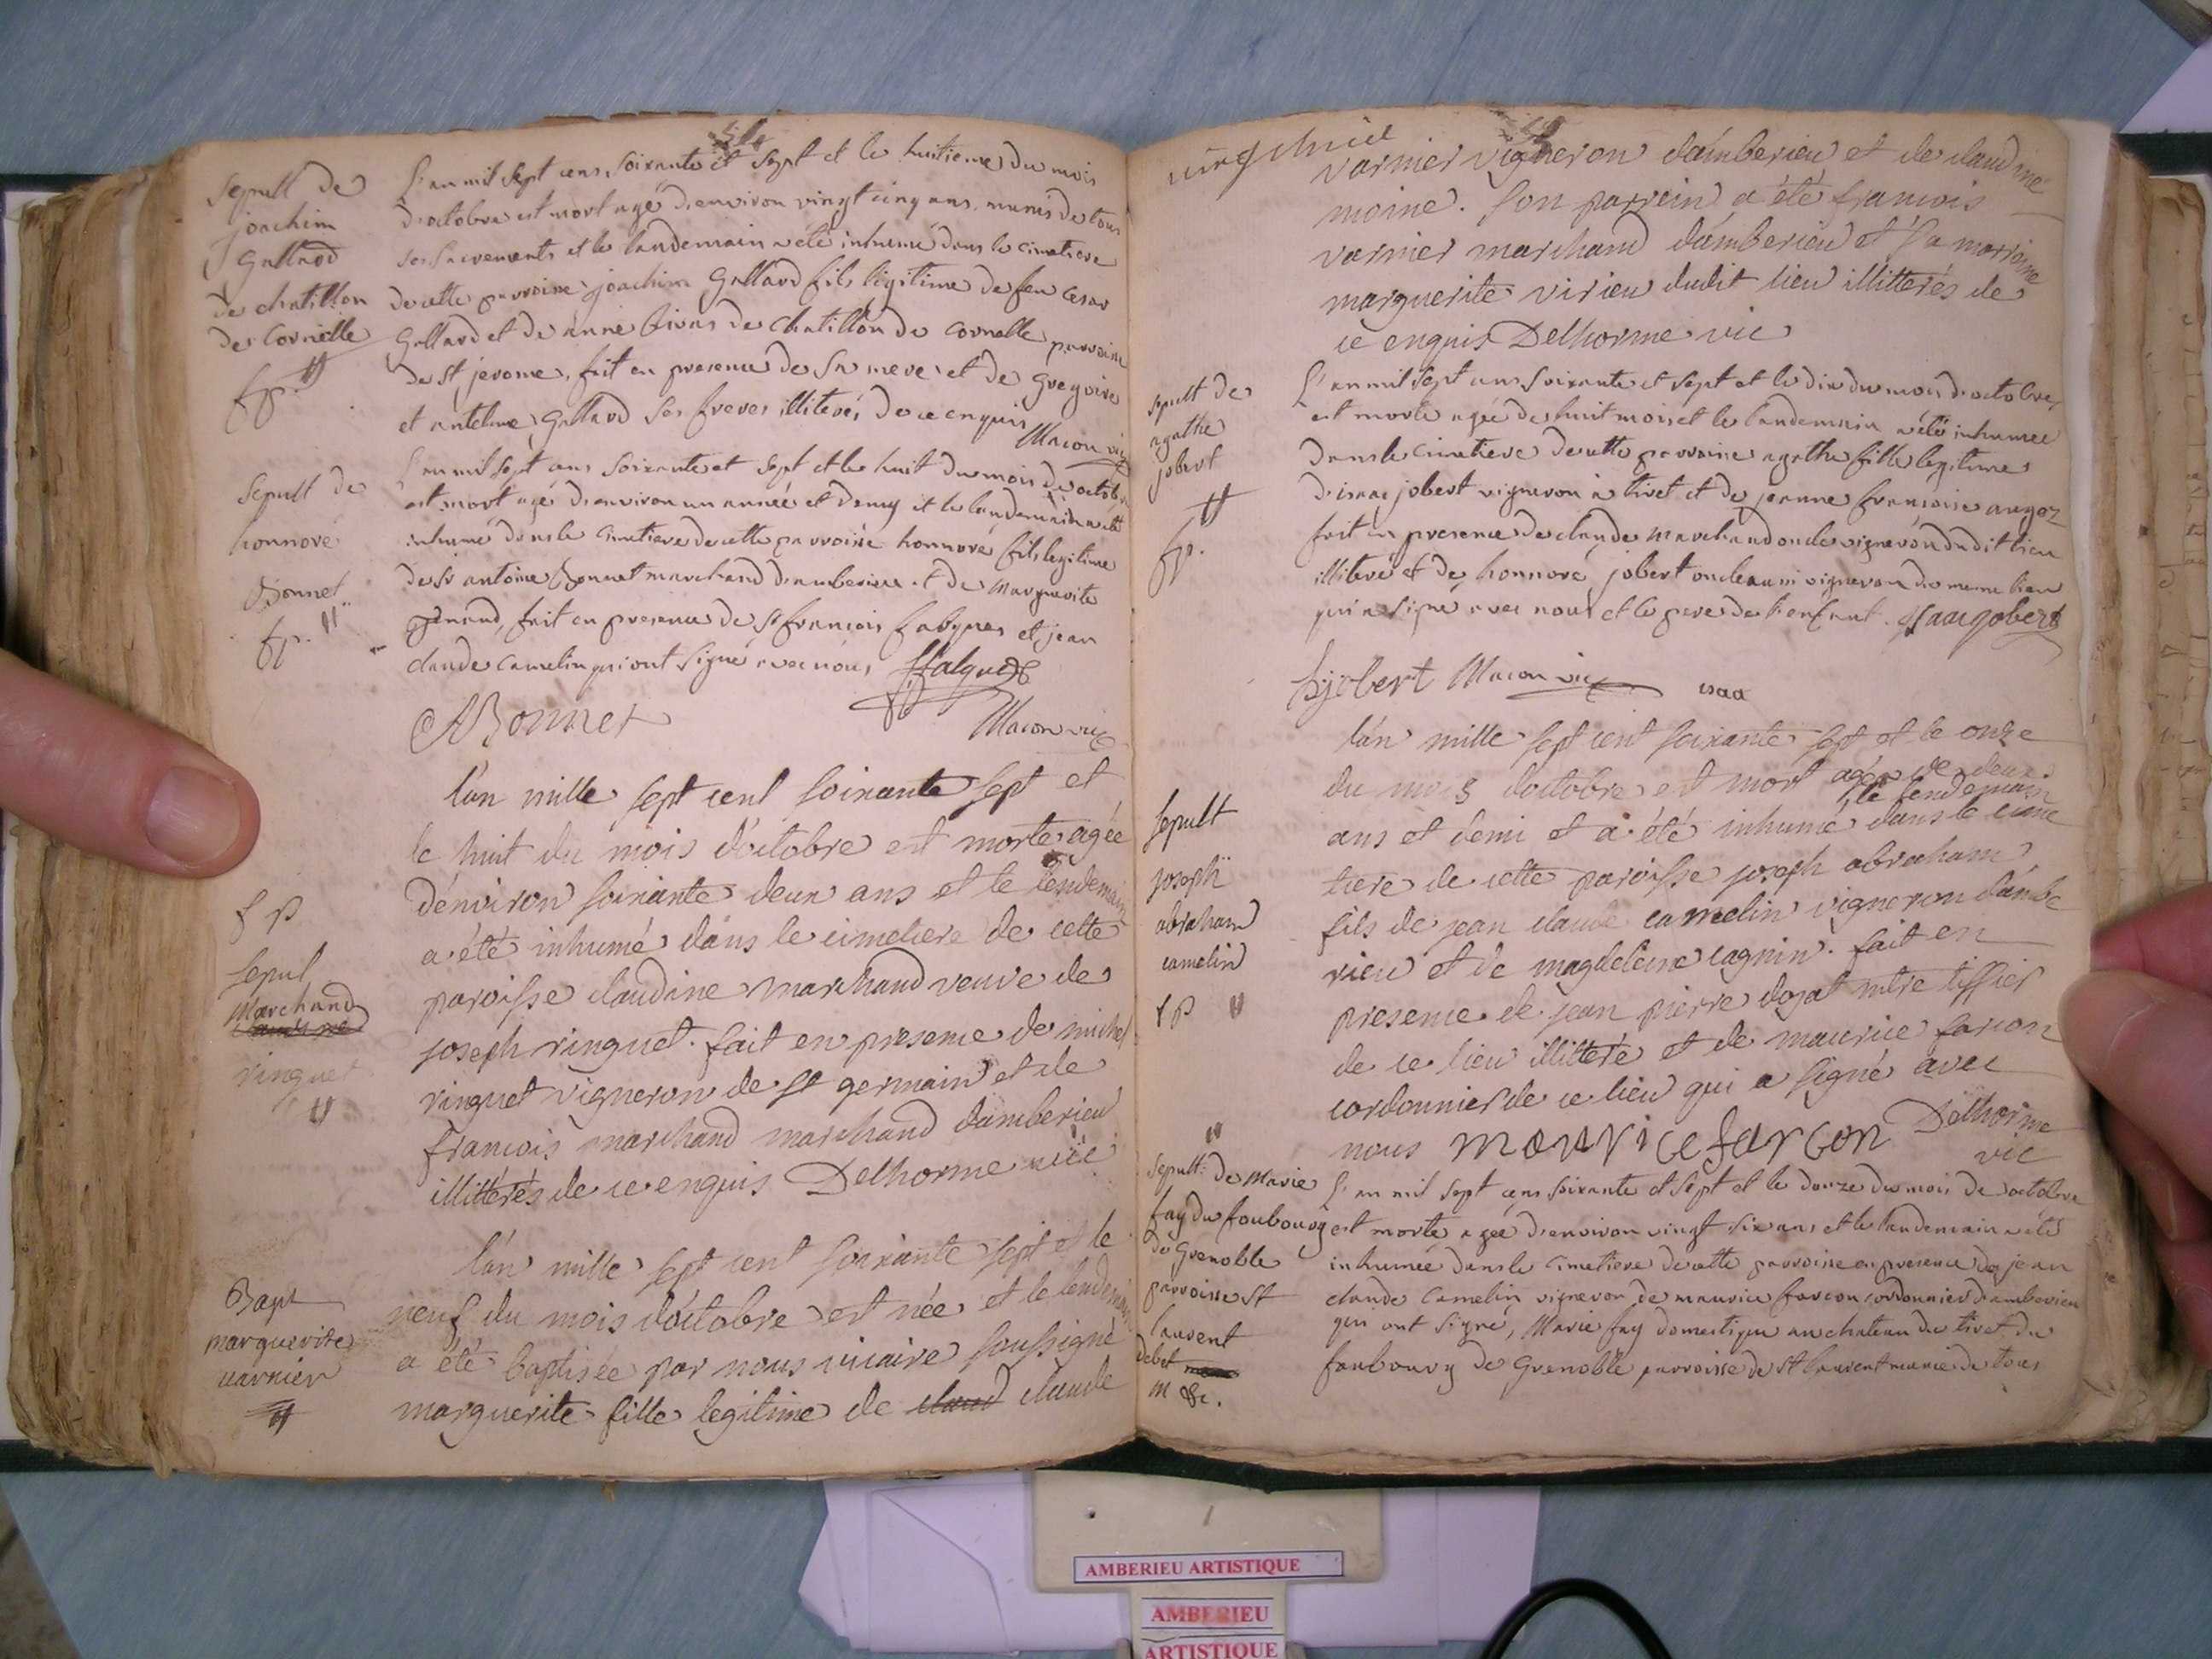 Sepult de
joachim
Gallard
de chatillon
de Cornelle
fp.
L'an mil sept cens soixante et sept et le huitieme du mois
d'octobre est mort agé d'environ vingt cinq ans, munis de tous
ses sacrements et le landemain a été inhumé dans le cimetiere
de cette parroisse joachim Gallard fils légitime de feu Cesar
Gallard et de anne bivas de Chatillon de Cornelle parroisse
de st jerome, fait en presence de sa mere et de gregoire
et antelme Gallard ses freres illiterés de ce enquis
Macon vic
Sepult de
honnoré
Bonnet
fp.
L'an mil sept cens soixante et sept et le huit du mois de octobre
est mort agé d'environ un année et demy et le landemain a été
inhumé dans le cimetiere de cette parroisse honnoré fils legitime
de Sr antoine Bonnet marchand d'amberieu et de Marguerite
genand, fait en presence de Sr francois falques et jean
claude Camelin qui ont signé avec nous ffalques
ABonnet
Macon vic
f p
Sepul
Marchand
ringuet
l'an mille sept cent soixante sept et
le huit du mois d'octobre est morte agée
d'environ soixante deux ans et le lendemain
a été inhumé dans le cimetiere de cette
paroisse claudine marchand veuve de
joseph ringuet. fait en presence de michel
ringuet vigneron de st germain et de
francois marchand marchand d'amberieu
illitterés de ce enquis Delhorme vic
Bapt
marguerite
varnier
l'an mille sept cent soixante sept et le
neuf du mois d'octobre est née et le lendemain
a été baptisée par nous vicaire soussigné
marguerite fille legitime de claud claude
varnier vigneron d'amberieu et de claudine
moine. son parrein a été francois
varnier marchand d'amberieu et sa marreine
marguerite virieu dudit lieu illitterés de
ce enquis Delhorme vic
sepult de
agathe
jobert
fp.
L'an mil sept cens soixante et sept et le dix du mois d'octobre
est morte agée de huit mois et le landemain a été inhumée
dans le cimetiere de cette parroisse agathe fille legitime
d'isaac jobert vigneron a tiret et de jeanne francoise augoz
fait en presence de claude marchand oncle vigneron dudit lieu
illiteré et de honnoré jobert oncle aussi vigneron du meme lieu
qui a signé avec nous et le pere de l'enfant. Isaac gobert
h jobert Macon vic isaa
Sepult
joseph
abraham
camelin
f p
l'an mille sept cent soixante sept et le onze
du mois d'octobre est mort agée de deux
ans et demi et a été inhumé le lendemain dans le cime
tiere de cette paroisse joseph abraham
fils de jean claude camelin vigneron d'ambe
rieu et de magdeleine cagnin. fait en
presence de jean pierre dojat mtre tissier
de ce lieu illitteré et de maurice farcon
cordonnier de ce lieu qui a signé avec
nous mauvice farcon Delhorme
vic
sepult: de Marie
fay du foubourg
de Grenoble
parroisse st
laurent
debet
m &c.
L'an mil sept cens soixante et sept et le douze du mois de octobre
est morte agée d'environ vingt six ans et le landemain a été
inhumée dans le cimetiere de cette parroisse en presence de jean
claude Camelin vigneron de maurice farcon cordonnier d'amberieu
qui ont signé, Marie fay domestique au chateau du tiret du
faubourg de Grenoble parroisse de st laurent munie de tous
AMBERIEU ARTISTIQUE
AMBERIEU
ARTISTIQUE